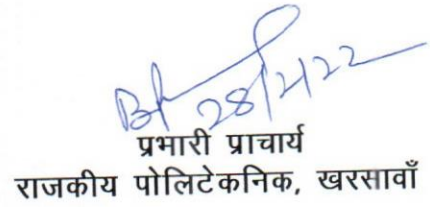 28/2/22
प्रभारी प्राचार्य
राजकीय पोलिटेकनिक, खरसावाँ